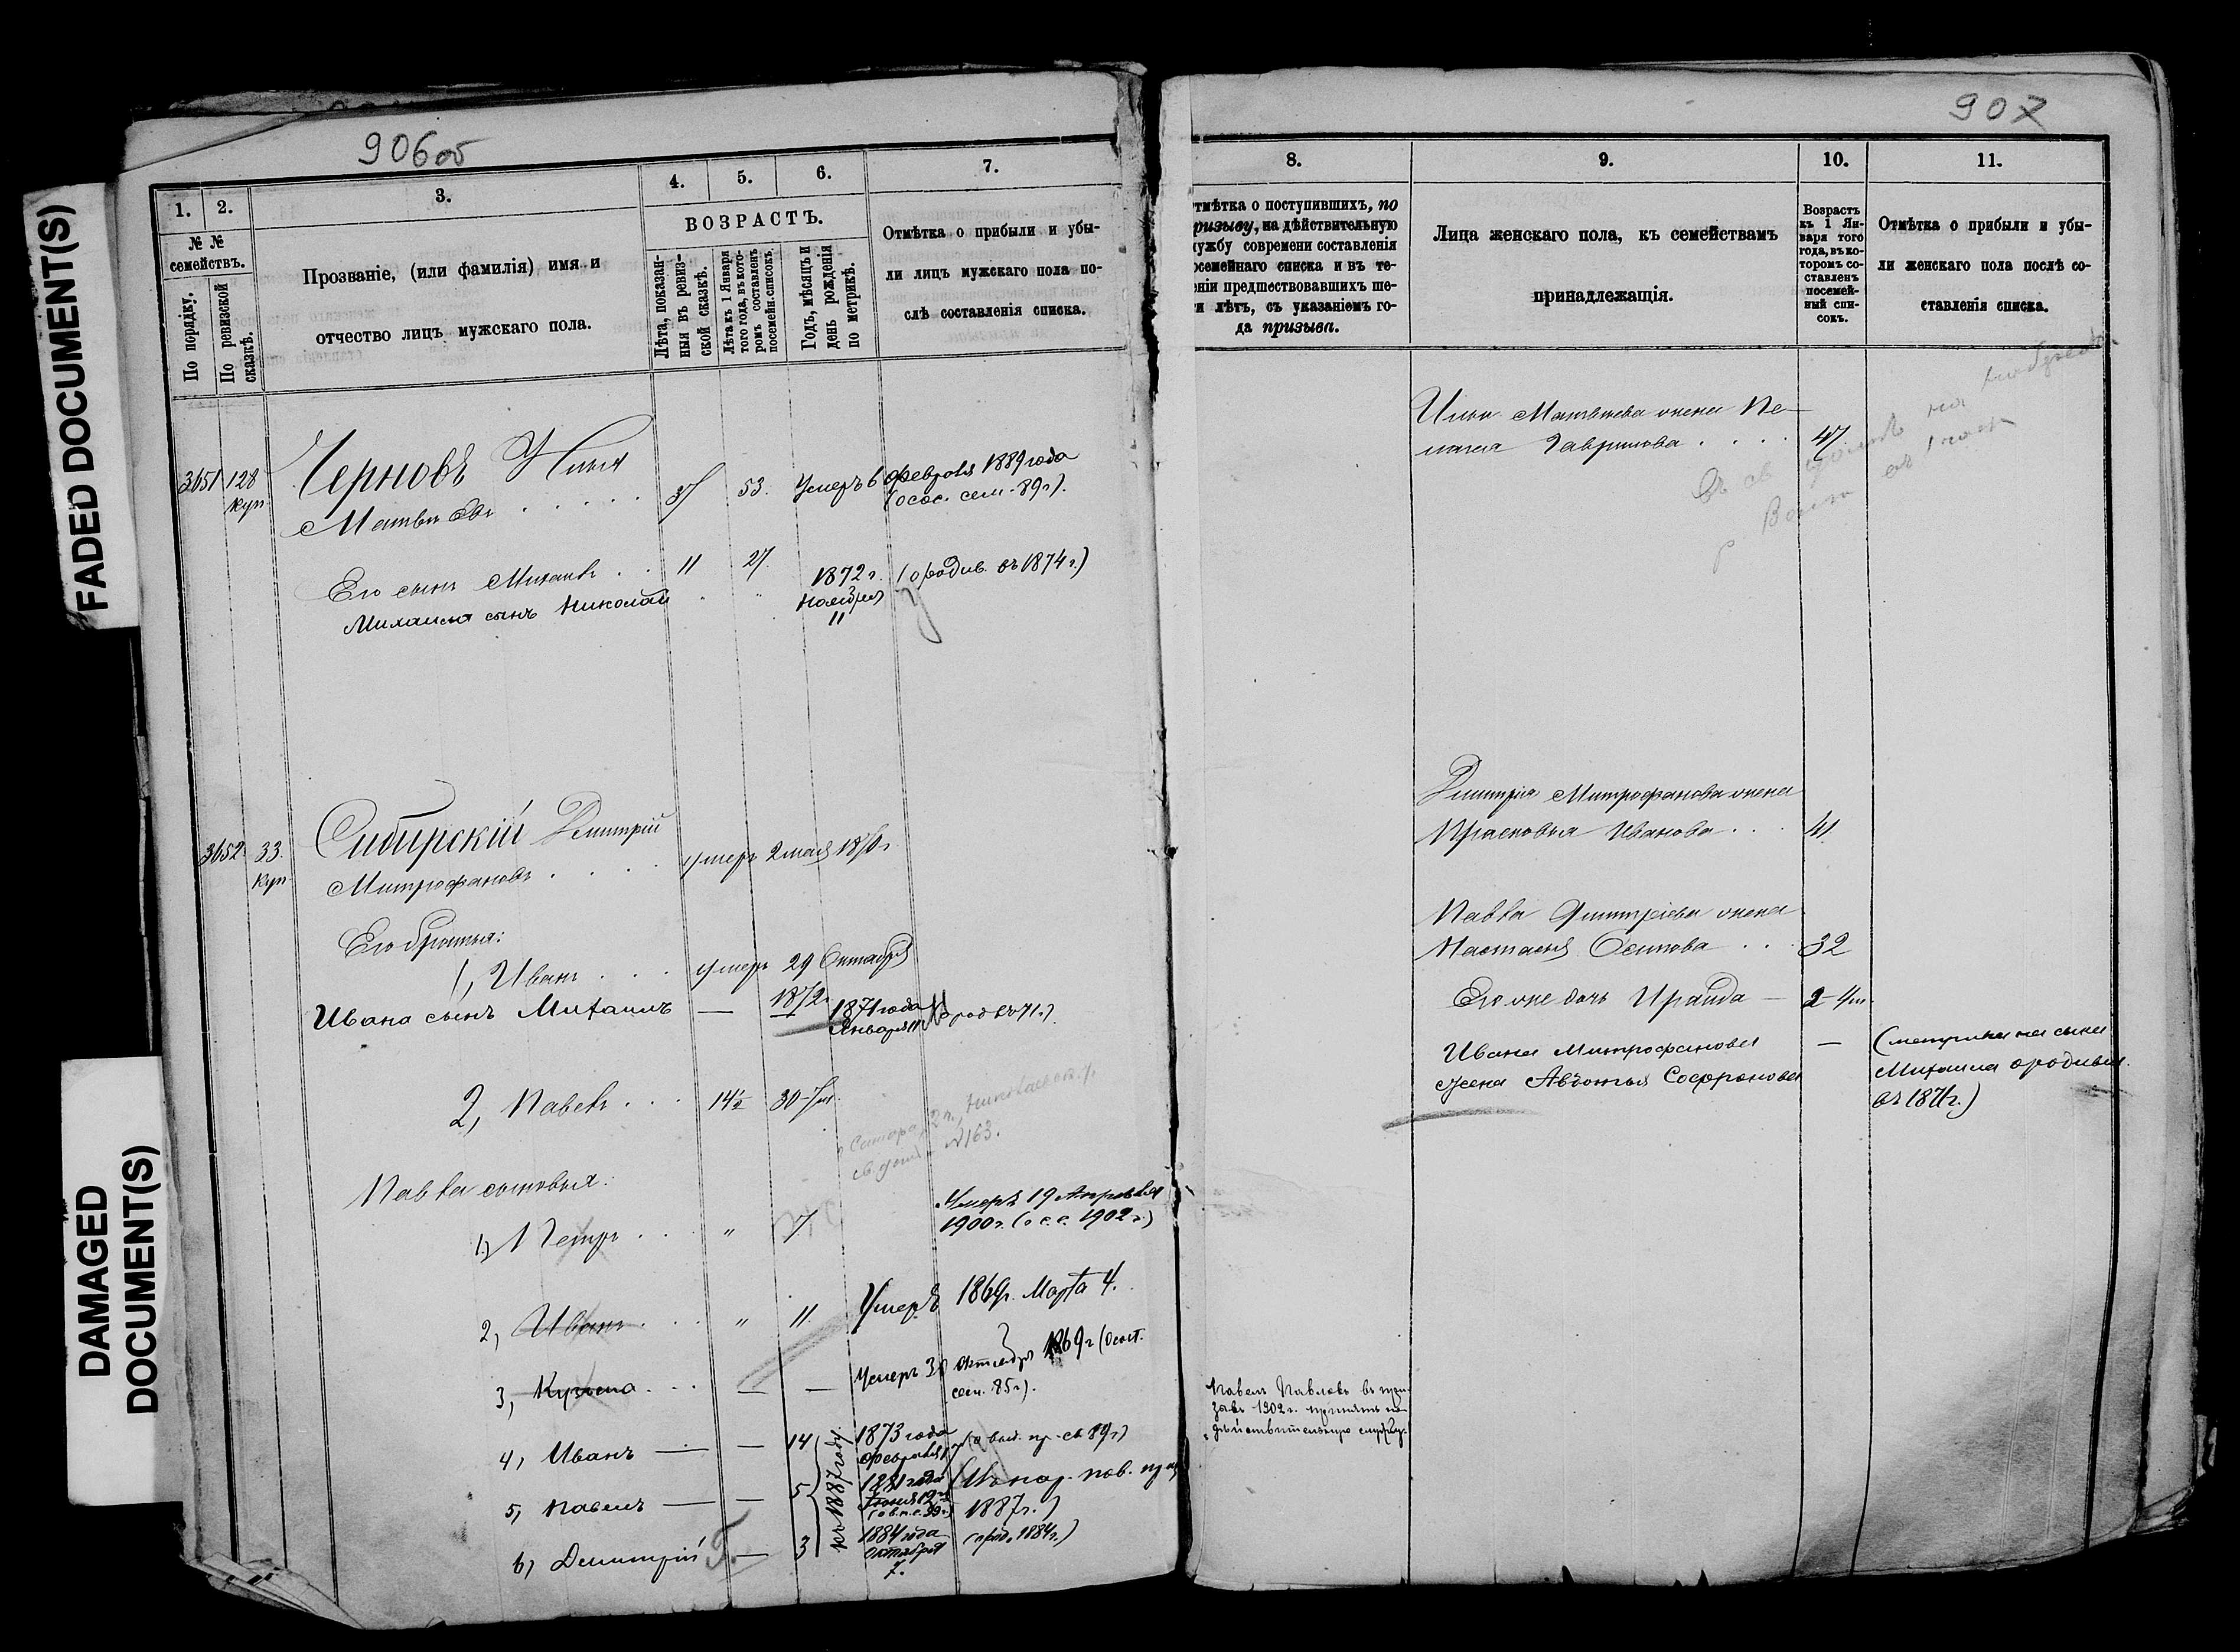 FADED DOCUMENT(S)
DAMAGED
DOCUMENT(S)
906об
1.
2.
3.
4.
5.
6.
7.
№ №
семействъ.
По порядку.
По ревизской
сказкѣ.
Прозваніе, (или фамилія) имя и
отчество лицъ мужскаго пола.
ВОЗРАСТЪ.
Лѣта, показан-
ныя въ ревиз-
ской сказкѣ.
Лѣта къ 1 Января
того года, въ кото-
ромъ составленъ
посемейн. списокъ.
Годъ, мѣсяцъ и
день рожденія
по метрикѣ.
Отмѣтка о прибыли и убы-
ли лицъ мужскаго пола по-
слѣ составленія списка.
3651 128 Черновъ Илья
куп. Матвѣевъ
37 53. Умеръ 6 Февраля 1889 года
(осос. сем. 89 г.).
Его сынъ Михаилъ 11 27.
Михаила сынъ Николай
1872 г. (о родив. въ 1874 г.)
Ноября
11
3652 33. Сибирскій Дмитрій
куп. Митрофановъ умеръ 2 мая
Его братья:
1, Иванъ умеръ 29 Октября
1872 г.
Ивана сынъ Михаилъ — 1871 года
Января 11
2, Павелъ 14½ 30
№ 163.
Павла сыновья:
1,) Петръ " 7. Умеръ 19 Апрѣля
1900 г. (о с. с. 1902 г.)
2, Иванъ " 11. Умеръ 1869 г. Марта 4.
3, Кузьма — — Умеръ октября 1869 г
сем. 85 г).
4, Иванъ — — 14 1873 года
Февраля
5, Павелъ — — 5 1881 года
Іюня 19
1887 г.)
6, Дмитрій — 3 1884 года (о род. 1884 г.)
Октября
7.
къ 1887 году
907
8.
9.
10.
11.
тмѣтка о поступившихъ, по
призыву, на дѣйствительную
ужбу современи составленія
осемейнаго списка и въ те-
ніи предшествовавшихъ ше-
и лѣтъ, съ указаніемъ го-
да призыва.
Лица женскаго пола, къ семействамъ
принадлежащія.
Возрастъ
къ 1 Ян-
варя того
года, въ ко-
торомъ со-
ставленъ
посемей-
ный спи-
сокъ.
Отмѣтка о прибыли и убы-
ли женскаго пола послѣ со-
ставленія списка.
Ильи Матвѣева жена Пе-
лагея Гаврилова 47.
Дмитрія Митрофанова жена
Прасковья Иванова 41
Павла Дмитріева жена
Настасья Осипова 32
Его же дочь Ираида — 2
Ивана Митрофанова — (метрика на сына
жена Авдотья Софронова Михаила о родивш.
въ 1871 г.)
Павелъ Павловъ въ при-
зывъ 1902 г. принятъ на
дѣйствительную службу.